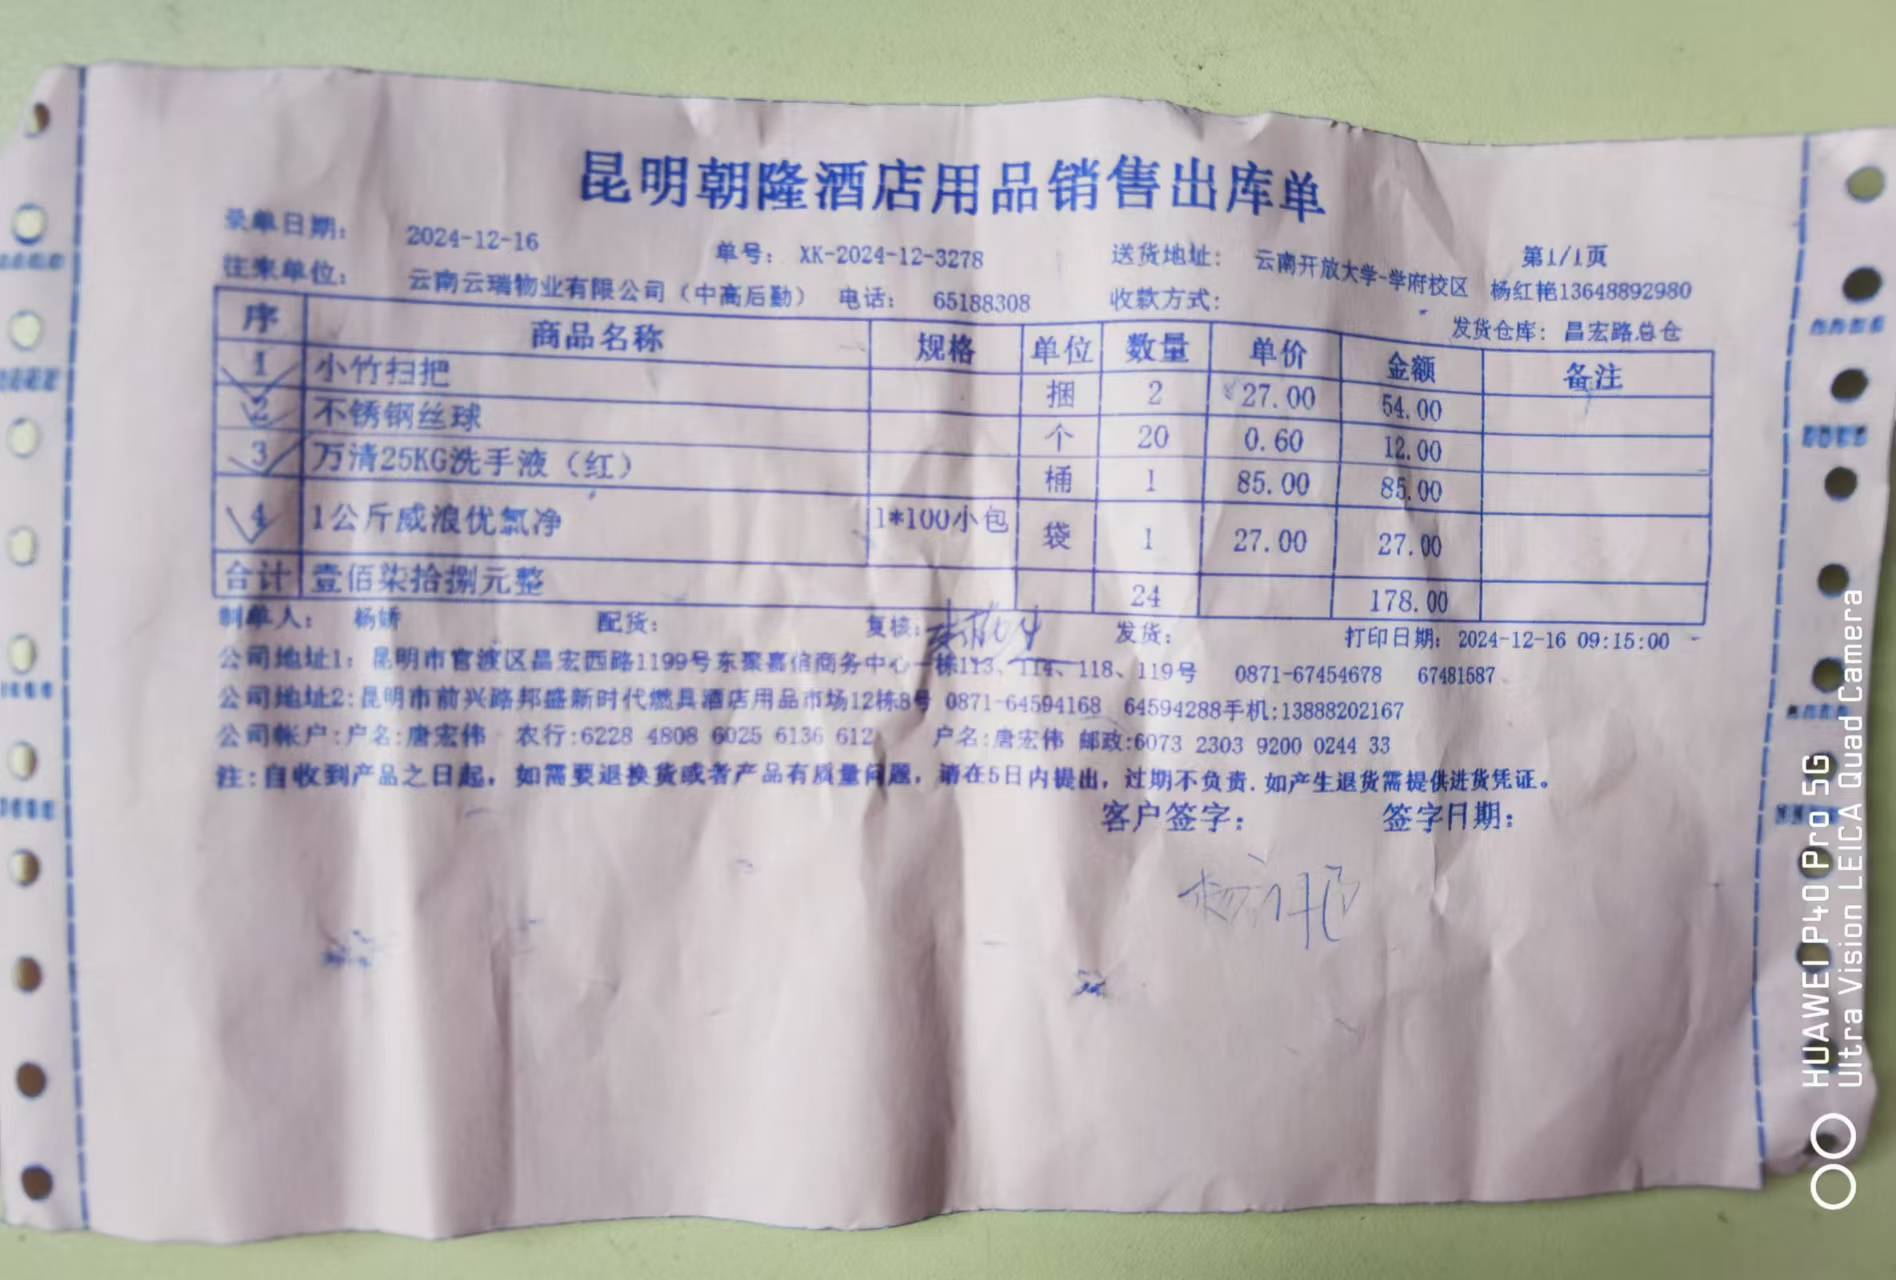 昆明朝隆酒店用品销售出库单
录单日期： 2024-12-16 单号： XK-2024-12-3278 送货地址： 云南开放大学-学府校区 杨红艳13648892980 第1/1页
往来单位： 云南云瑞物业有限公司（中高后勤） 电话： 65188308 收款方式： 发货仓库：昌宏路总仓
序 商品名称 规格 单位 数量 单价 金额 备注
1 小竹扫把 捆 2 27.00 54.00
2 不锈钢丝球 个 20 0.60 12.00
3 万清25KG洗手液（红） 桶 1 85.00 85.00
4 1公斤威浪优氯净 1*100小包 袋 1 27.00 27.00
合计 壹佰柒拾捌元整 24 178.00
制单人： 杨娇 配货： 复核： 发货： 打印日期： 2024-12-16 09:15:00
公司地址1：昆明市官渡区昌宏西路1199号东聚嘉信商务中心一栋113、114、118、119号 0871-67454678 67481587
公司地址2:昆明市前兴路邦盛新时代燃具酒店用品市场12栋8号 0871-64594168 64594288手机:13888202167
公司帐户:户名:唐宏伟 农行:6228 4808 6025 6136 612 户名:唐宏伟 邮政:6073 2303 9200 0244 33
注:自收到产品之日起，如需要退换货或者产品有质量问题，请在5日内提出，过期不负责.如产生退货需提供进货凭证。
客户签字： 签字日期：
HUAWEI P40 Pro 5G
Ultra Vision LEICA Quad Camera